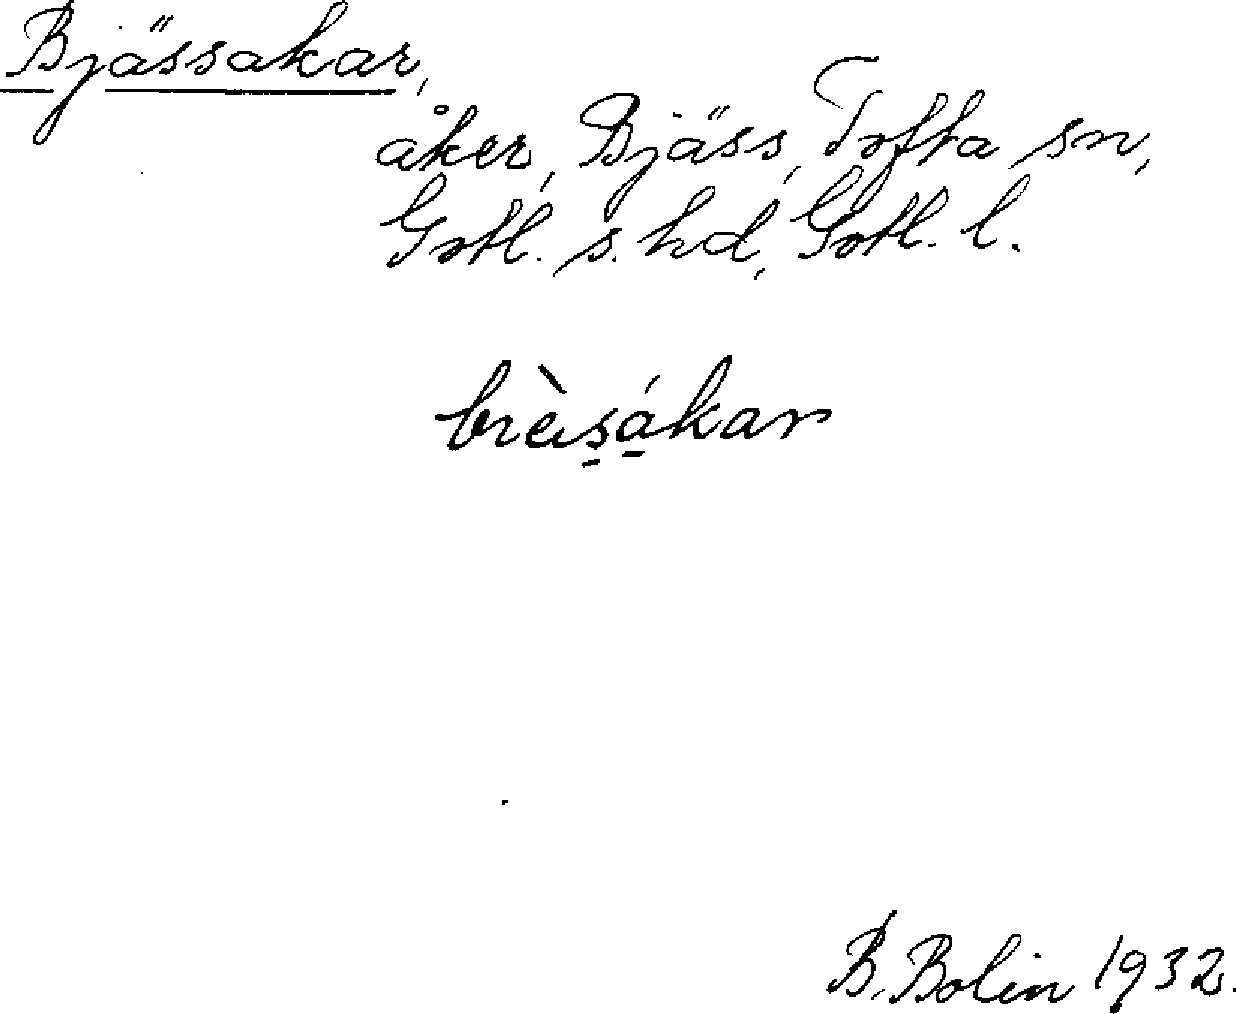 Bjässakar,
åker, Bjäss, Tofta sn,
Gotl. s. hd, Gotl. l.
B. Bolin 1932.